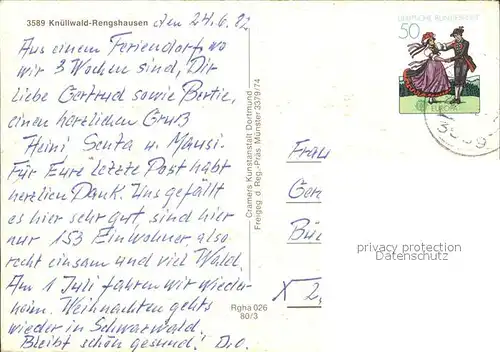 3589 Knüllwald-Rengshausen
den 24.6.82
Aus einem Feriendorf, wo
wir 3 Wochen sind, Dir
liebe Gertrud sowie Bertie,
einen herzlichen Gruß
Heini Senta u. Mausi.
Für Eure letzte Post habt
herzlichen Dank. Uns gefällt
es hier sehr gut, sind hier
nur 153 Einwohner, also
recht einsam und viel Wald.
Am 1 Juli fahren wir wieder
heim. Weihnachten gehts
wieder in Schwarzwald.
Bleibt schön gesund! D.O.
Cramers Kunstanstalt Dortmund
Freigeg d. Reg.-Präs Münster 3379/74
Rgha 026
80/3
DEUTSCHE BUNDESPOST
50
EUROPA
Frau
Ger
X 2
privacy protection
Datenschutz